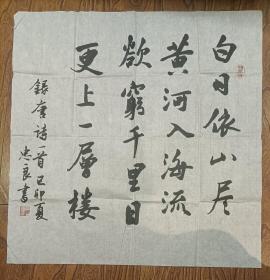 白日依山尽
黄河入海流
欲窮千里目
更上一層楼
録唐诗一首己卯夏
忠良書